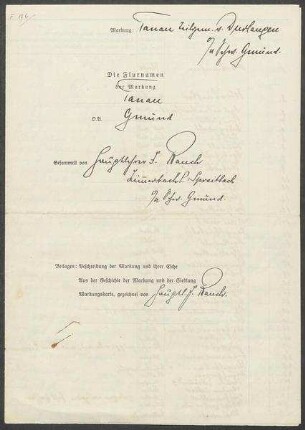 Markung Tanau Teilgem. v. Durlangen
O/A Schw. Gmünd
Die Flurnamen
der Markung
Tanau
O.A. Gmünd
Gesammelt von Hauptlehrer J. Rauch
Zimmerbach b. Spraitbach
O/A Schw. Gmünd.
Beilagen: Beschreibung der Markung und ihrer Esche
Aus der Geschichte der Markung und der Siedlung
Markungskarte, gezeichnet von Hauptl. J. Rauch.